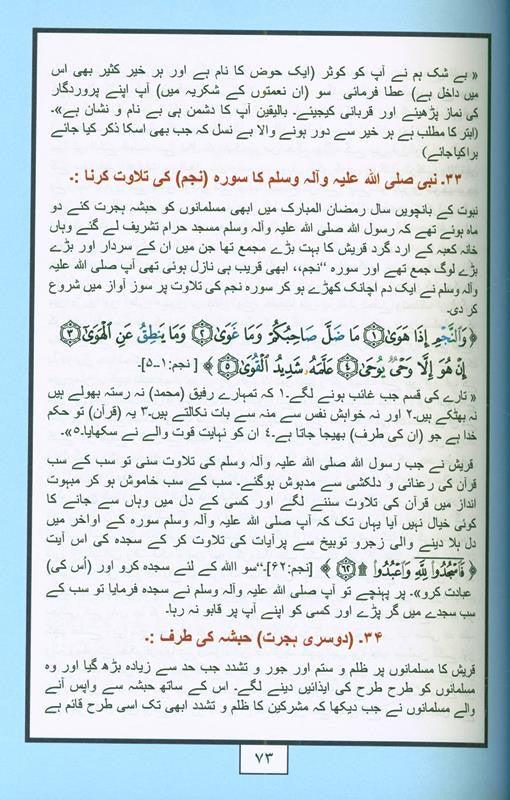 « بے شک ہم نے آپ کو کوثر (ایک حوض کا نام ہے اور ہر خیر کثیر بھی اس
میں داخل ہے) عطا فرمائی سو (ان نعمتوں کے شکریہ میں) آپ اپنے پروردگار
کی نماز پڑھیئے اور قربانی کیجیئے۔ بالیقین آپ کا دشمن ہی بے نام و نشان ہے»۔
(ابتر کا مطلب ہے ہر خیر سے دور ہونے والا بے نسل کہ جب بھی اسکا ذکر کیا جائے
براکیاجائے)
٣٣۔ نبی صلی اللہ علیہ وآلہ وسلم کا سورہ (نجم) کی تلاوت کرنا :.
نبوت کے پانچویں سال رمضان المبارک میں ابھی مسلمانوں کو حبشہ ہجرت کئے دو
ماہ ہوئے تھے کہ رسول اللہ صلی اللہ علیہ وآلہ وسلم مسجد حرام تشریف لے گئے وہاں
خانہ کعبہ کے ارد گرد قریش کا بہت بڑے مجمع تھا جن میں ان کے سردار اور بڑے
بڑے لوگ جمع تھے اور سورہ “نجم،، ابھی قریب ہی نازل ہوئی تھی آپ صلی اللہ علیہ
وآلہ وسلم نے ایک دم اچانک کھڑے ہو کر سورہ نجم کی تلاوت پر سوز آواز میں شروع
کر دی۔
﴿ وَٱلنَّجْمِ إِذَا هَوَىٰ ١ مَا ضَلَّ صَاحِبُكُمْ وَمَا غَوَىٰ ٢ وَمَا يَنطِقُ عَنِ ٱلْهَوَىٰ ٣
إِنْ هُوَ إِلَّا وَحْىٌ يُوحَىٰ ٤ عَلَّمَهُۥ شَدِيدُ ٱلْقُوَىٰ ٥ ﴾ [ نجم:١۔٥]۔
« تارے کی قسم جب غائب ہونے لگے۔١ کہ تمہارے رفیق (محمد) نہ رستہ بھولے ہیں
نہ بھٹکے ہیں۔٢ اور نہ خواہش نفس سے منہ سے بات نکالتے ہیں۔٣ یہ (قرآن) تو حکم
خدا ہے جو (ان کی طرف) بھیجا جاتا ہے۔٤ ان کو نہایت قوت والے نے سکھایا۔٥»۔
قریش نے جب رسول اللہ صلی اللہ علیہ وآلہ وسلم کی تلاوت سنی تو سب کے سب
قرآن کی رعنائی و دلکشی سے مدہوش ہوگئے۔ سب کے سب خاموش ہو کر مبہوت
انداز میں قرآن کی تلاوت سننے لگے اور کسی کے دل میں وہاں سے جانے کا
کوئی خیال نہیں آیا یہاں تک کہ آپ صلی اللہ علیہ وآلہ وسلم سورہ کے اواخر میں
دل ہلا دینے والی زجرو توبیخ سے پرآیات کی تلاوت کر کے سجدہ کی اس آیت
﴿ فَٱسْجُدُوا۟ لِلَّهِ وَٱعْبُدُوا۟ ۩ ٦٢ ﴾ [نجم:٦٢]۔“سو اللہ کے لئے سجدہ کرو اور (اُس کی)
عبادت کرو»۔ پر پہنچے تو آپ صلی اللہ علیہ وآلہ وسلم نے سجدہ فرمایا تو سب کے
سب سجدے میں گر پڑے اور کسی کو اپنے آپ پر قابو نہ رہا۔
٣۴۔ (دوسری ہجرت) حبشہ کی طرف :.
قریش کا مسلمانوں پر ظلم و ستم اور جور و تشدد جب حد سے زیادہ بڑھ گیا اور وہ
مسلمانوں کو طرح طرح کی ایذائیں دینے لگے۔ اس کے ساتھ حبشہ سے واپس آنے
والے مسلمانوں نے جب دیکھا کہ مشرکین کا ظلم و تشدد ابھی تک اسی طرح قائم ہے
٧٣